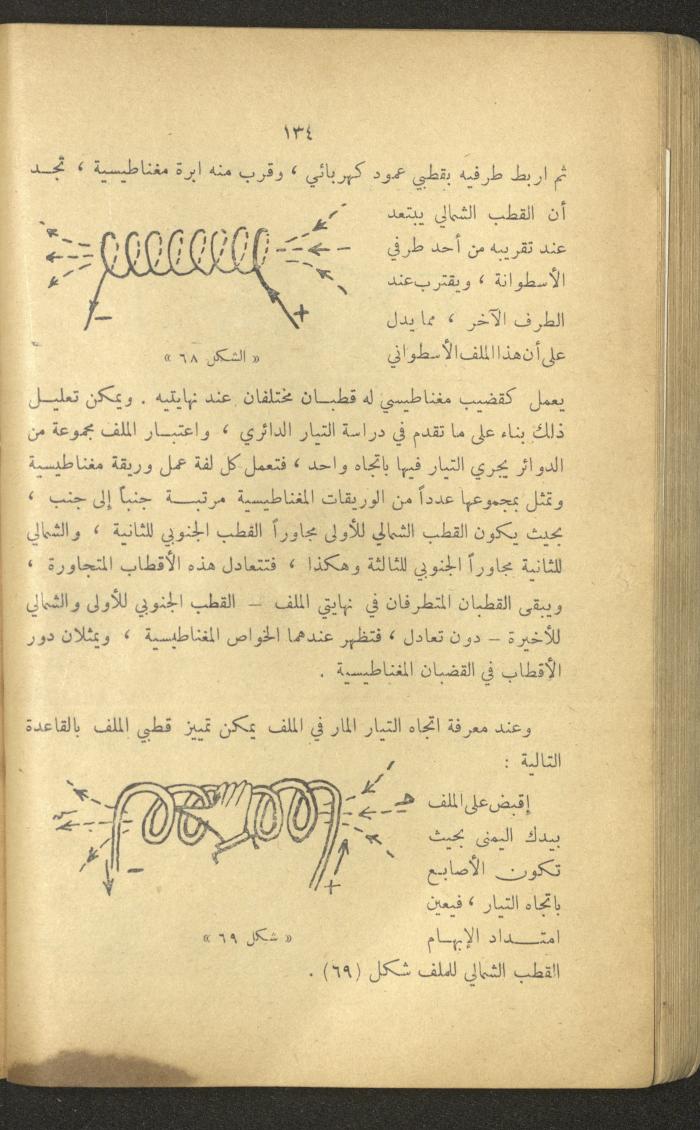 ١٣٤
ثم اربط طرفيه بقطبي عمود كهربائي ، وقرب منه ابرة مغناطيسية ، تجـد
أن القطب الشمالي يبتعد
عند تقريبه من أحد طرفي
الأسطوانة ، ويقترب عند
الطرف الآخر ، مما يدل
على أن هذا الملف الأسطواني
+
−
« الشكل ٦٨ »
يعمل كقضيب مغناطيسي له قطبـان مختلفان عند نهايتيه . ويمكن تعليـل
ذلك بناء على ما تقدم في دراسة التيار الدائري ، واعتبـار الملف مجموعة من
الدوائر يجري التيار فيها باتجاه واحد ، فتعمل كل لفة عمل وريقة مغناطيسية
وتمثل بمجموعها عدداً من الوريقات المغناطيسية مرتبـة جنباً إلى جنب ،
بحيث يكون القطب الشمالي للأولى مجاوراً القطب الجنوبي للثانية ، والشمالي
للثانية مجاوراً الجنوبي للثالثة وهكذا ، فتتعادل هذه الأقطاب المتجاورة ،
ويبقى القطبان المتطرفان في نهايتي الملف – القطب الجنوبي للأولى والشمالي
للأخيرة – دون تعادل ، فتظهر عندهما الخواص المغناطيسية ، ويمثلان دور
الأقطاب في القضبان المغناطيسية .
وعند معرفة اتجاه التيار المار في الملف يمكن تمييز قطبي الملف بالقاعدة
التالية :
إقبض على الملف
بيدك اليمنى بحيث
تكون الأصابع
باتجاه التيار ، فيعين
امتـداد الإبهـام
+
−
« شكل ٦٩ »
القطب الشمالي للملف شكل (٦٩) .